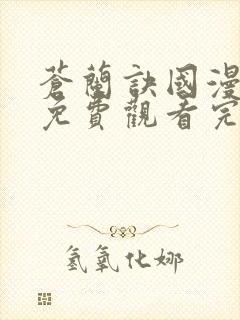 蒼蘭訣國漫
免費觀看完
氢氧化娜